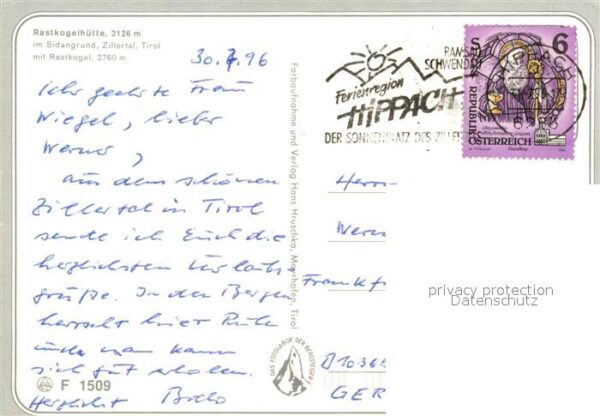 Rastkogelhütte, 2126 m
im Sidangrund, Zillertal, Tirol
mit Rastkogel, 2760 m
30.7.96
Ihr geehrte Frau
Wiegel, lieber
Werner,
aus dem schönen
Zillertal in Tirol
sende ich Euch die
herzlichsten Urlaubs
grüße. In den Bergen
herrscht hier Ruhe
und man kann
sich gut erholen.
Herzlichst
F 1509
Farbaufnahme und Verlag Hans Hruschka, Mayrhofen, Tirol
DAS FOTOLABOR DER BERGSTEIGER
RAMSAU
SCHWENDAU
Ferienregion
HIPPACH
DER SONNENPLATZ DES ZILLER
HIPPACH
6
REPUBLIK
ÖSTERREICH
Herrn
Wern
Frankf
D 1036
GER
privacy protection
Datenschutz